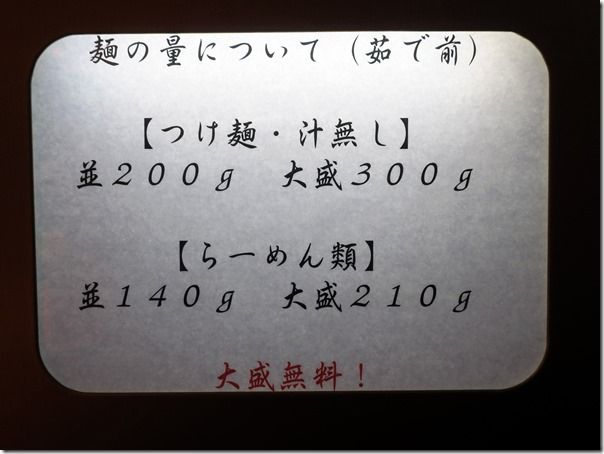 麺の量について（茹で前）
【つけ麺・汁無し】
並２００ｇ　大盛３００ｇ
【らーめん類】
並１４０ｇ　大盛２１０ｇ
大盛無料！